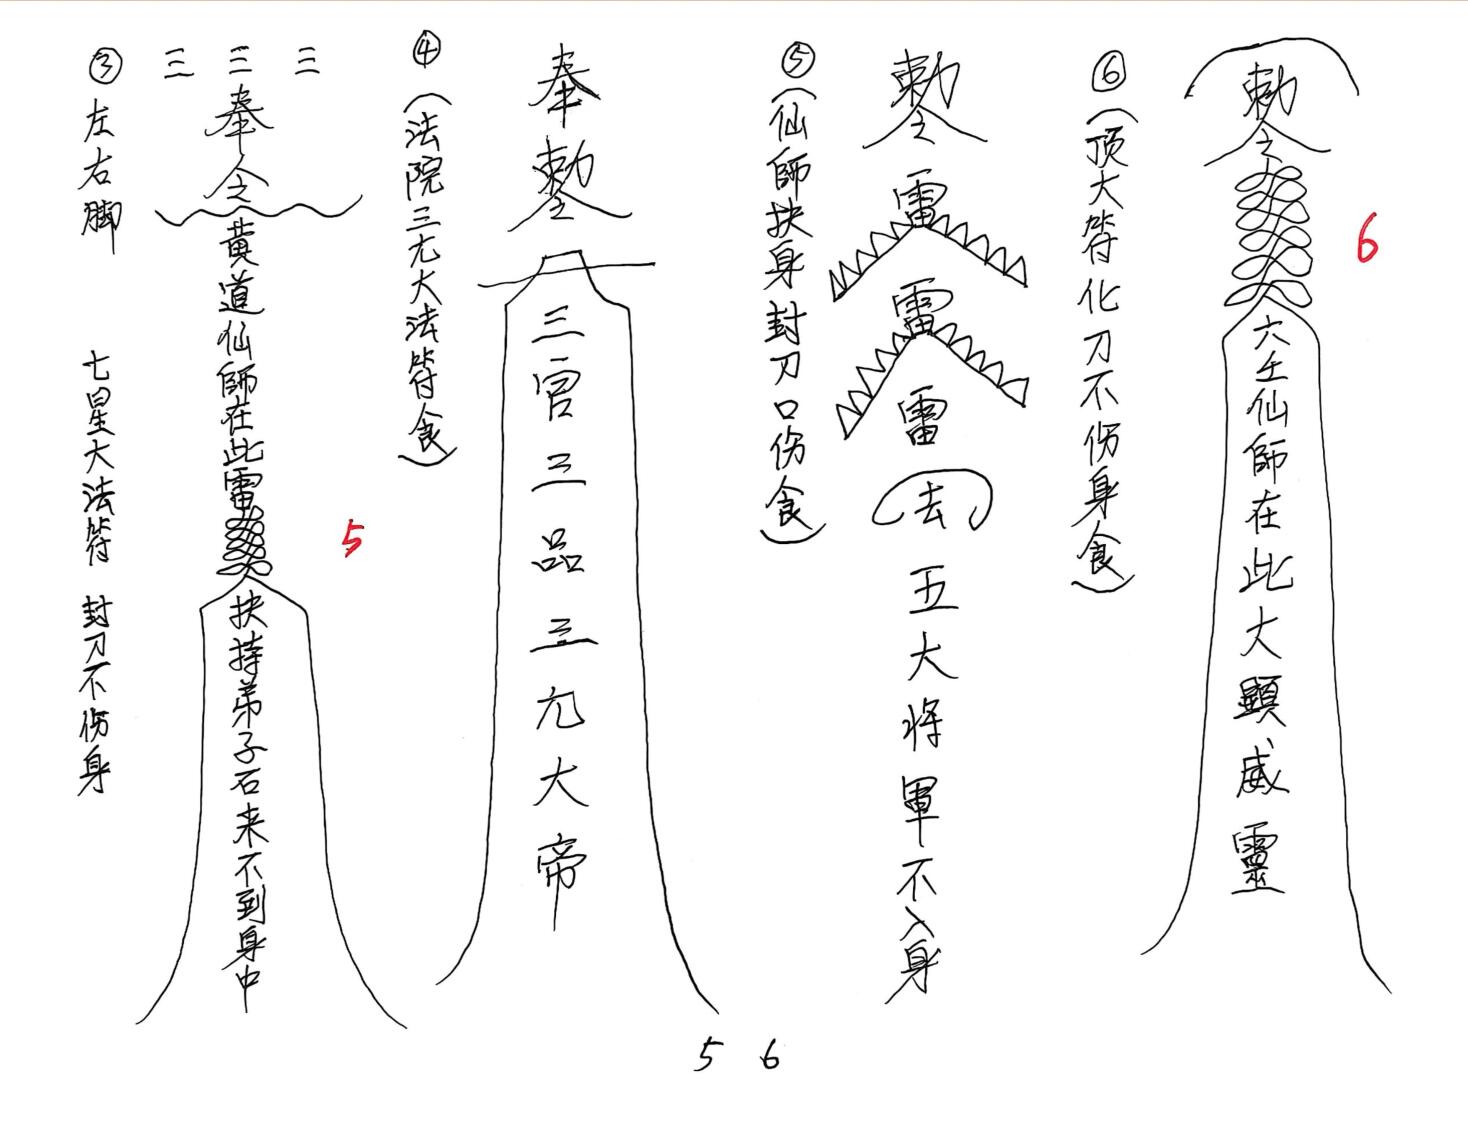 ③左右脚
七星大法符 封刀不伤身
三 三 三
奉令
黄道仙師在此雷
扶持弟子石来不到身中
5
④(法院三元大法符食)
奉勅令
三官三品三元大帝
⑤(仙師扶身封刀口伤食)
勅令
雷
雷
雷
去
五大将軍不入身
⑥(顶大符化刀不伤身食)
勅令
六壬仙師在此大顯威靈
6
5 6